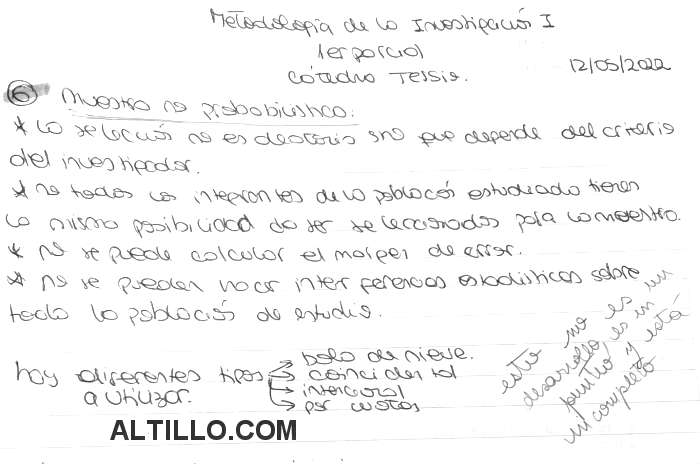 Metodología de la Investigación I
1er parcial
Cátedra Tessio.
12/05/2022
6) Muestra no probabilística:
* La selección no es aleatoria sino que depende del criterio
del investigador.
* no todos los integrantes de la población estudiada tienen
la misma posibilidad de ser seleccionados para la muestra.
* no se puede calcular el margen de error.
* no se pueden hacer interferencias estadísticas sobre
toda la población de estudio.
hay diferentes tipos
a utilizar.
bola de nieve.
coincidental
intencional
por cuotas
esto no es un
desarrollo, es un
punteo y está
incompleto
ALTILLO.COM